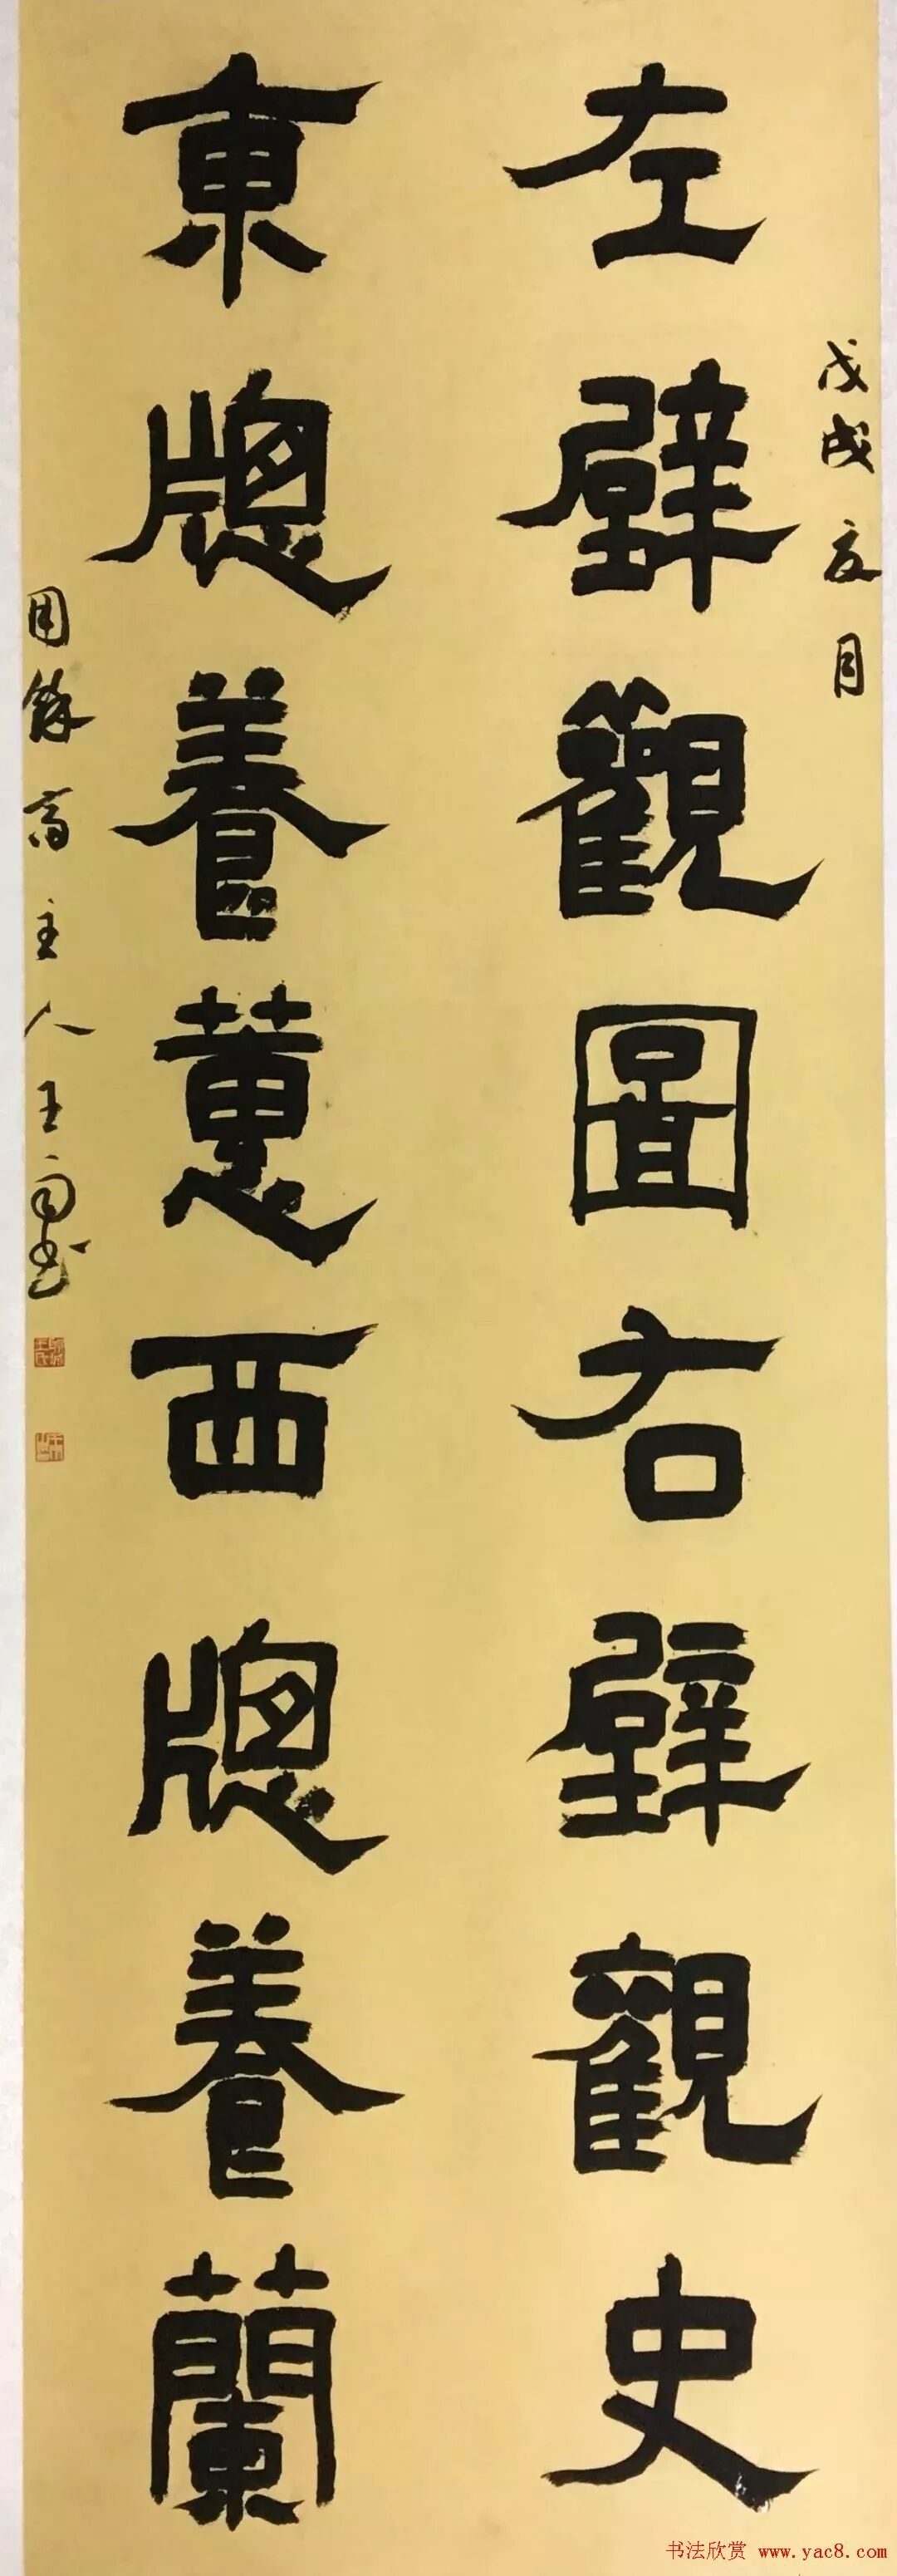 戊戌夏月
左壁觀圖右壁觀史
東牎養蕙西牎養蘭
用餘齋主人王
书法欣赏 www.yac8.com